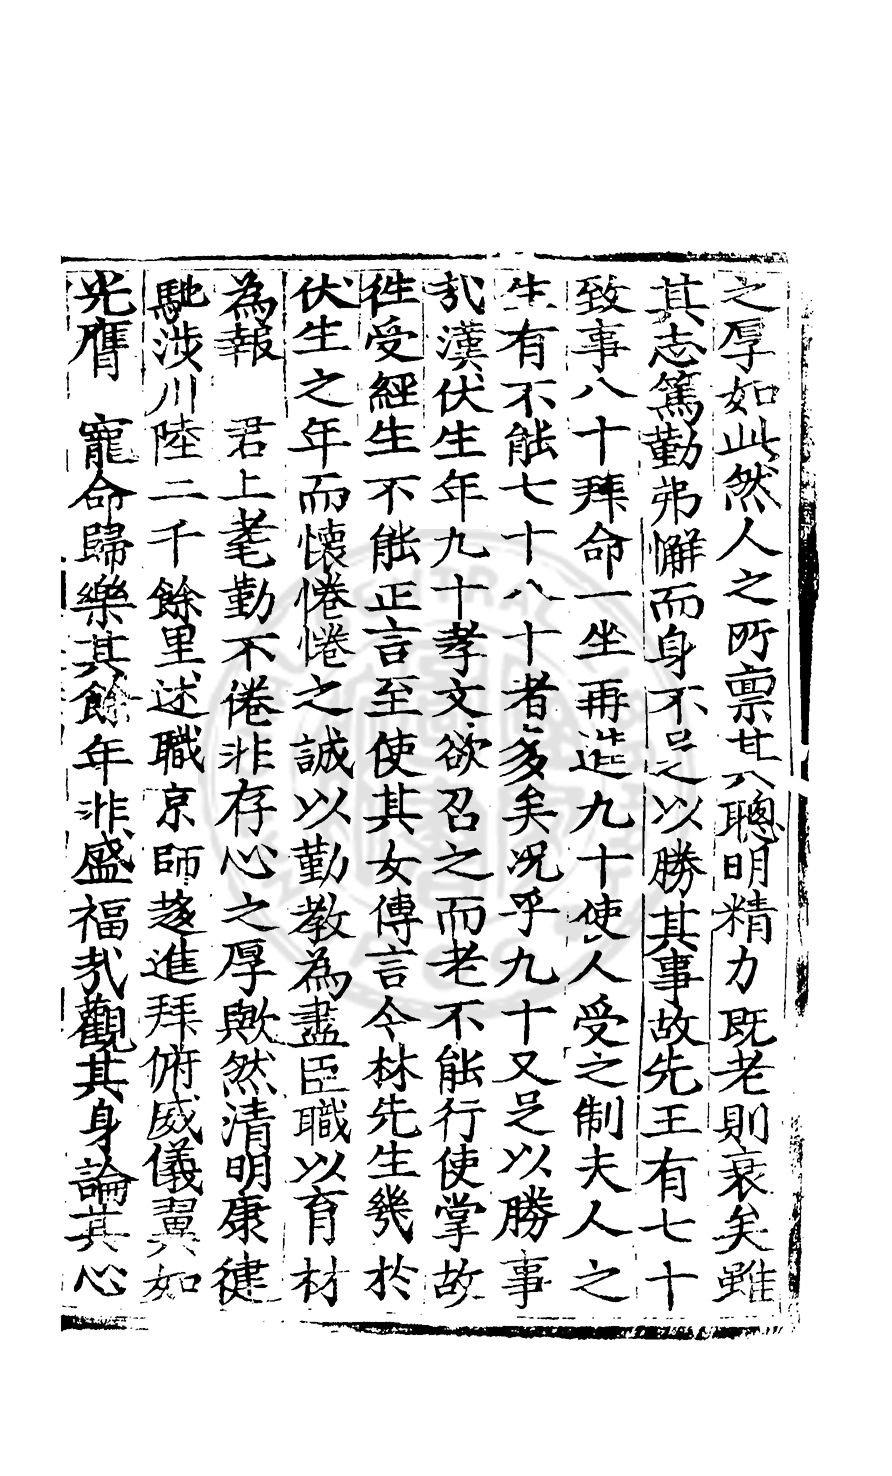 之厚如此然人之所稟其聰明精力既老則衰矣雖
其志篤勤弗懈而身不足以勝其事故先王有七十
致事八十拜命一坐再造九十使人受之制夫人之
生有不能七十八十者多矣况乎九十又足以勝事
㢤漢伏生年九十孝文欲召之而老不能行使掌故
徃受經生不能正言至使其女傳言今林先生幾於
伏生之年而懷惓惓之誠以勤教為盡臣職以育材
為報　君上耄勤不倦非存心之厚歟然清明康健
馳涉川陸二千餘里述職京師趍進拜俯威儀翼如
光膺　寵命歸樂其餘年非盛福㢤觀其身論其心